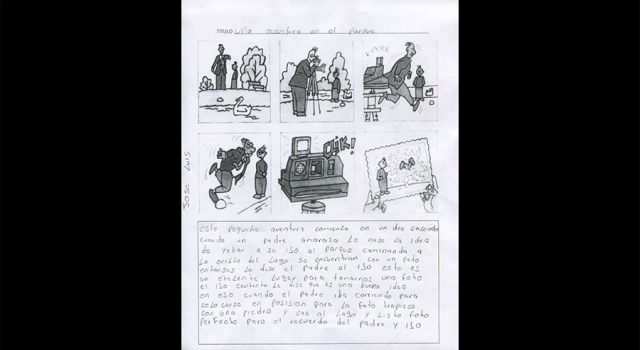 TITULO una aventura en el parque
KLICK!
JOSE LUIS
Esta pequeña: aventura comienza en un dia soleado
cuando un padre amoroso le nase la idea
de yebar a su ijo al parque caminando a
la orilla del lago se encuentran con un pato
entonses le dise el Padre al ijo este es
un excelente lugar para tomarnos una foto
el ijo contento le dise que es una buena idea
en eso cuando el padre iba corriendo para
colocarse en posision para la foto tropieso
con una piedra y cae al lago y listo foto
perfecta para el recuerdo del padre y ijo